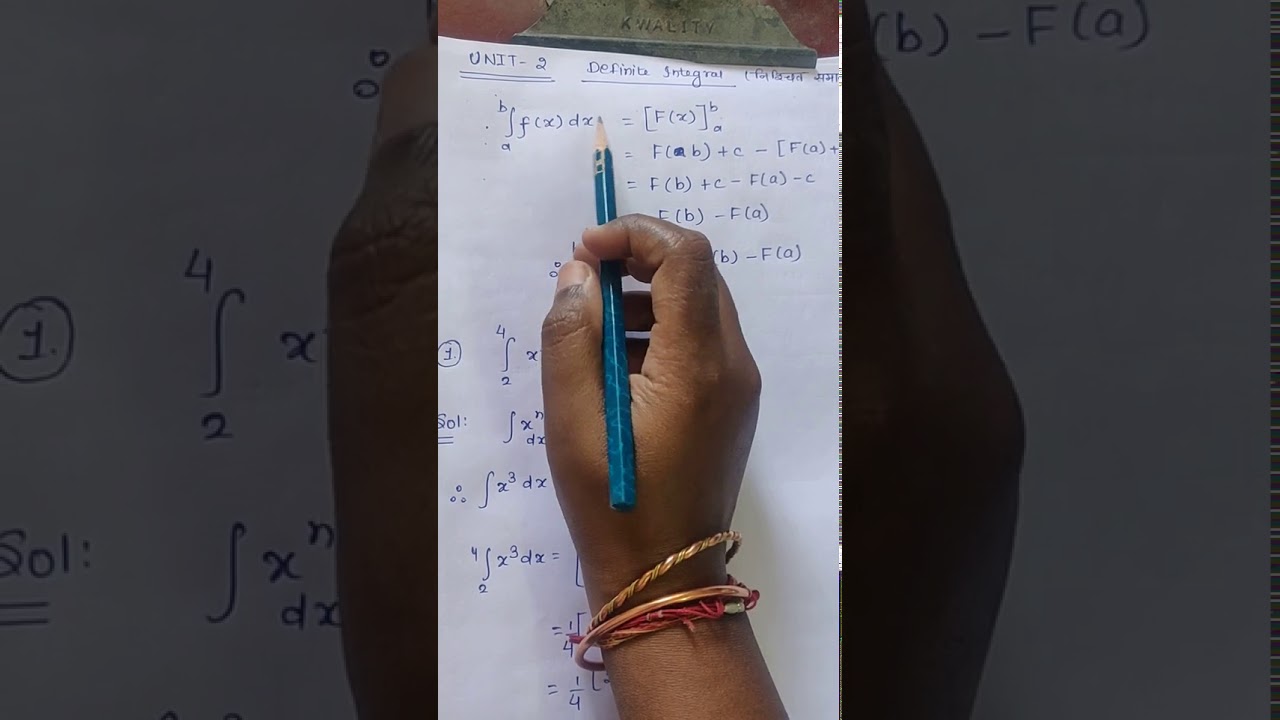 KWALITY
UNIT - 2 Definite Integral (निश्चित
∫ₐᵇ f(x) dx = [F(x)]ₐᵇ
= F(b) + c - [F(a) +
= F(b) + c - F(a) - c
F(b) - F(a)
∴ (b) - F(a)
1. ∫₂⁴ x
Sol: ∫xⁿ dx
∴ ∫x³ dx
∫₂⁴ x³ dx = [
= 1/4 [
= 1/4 [